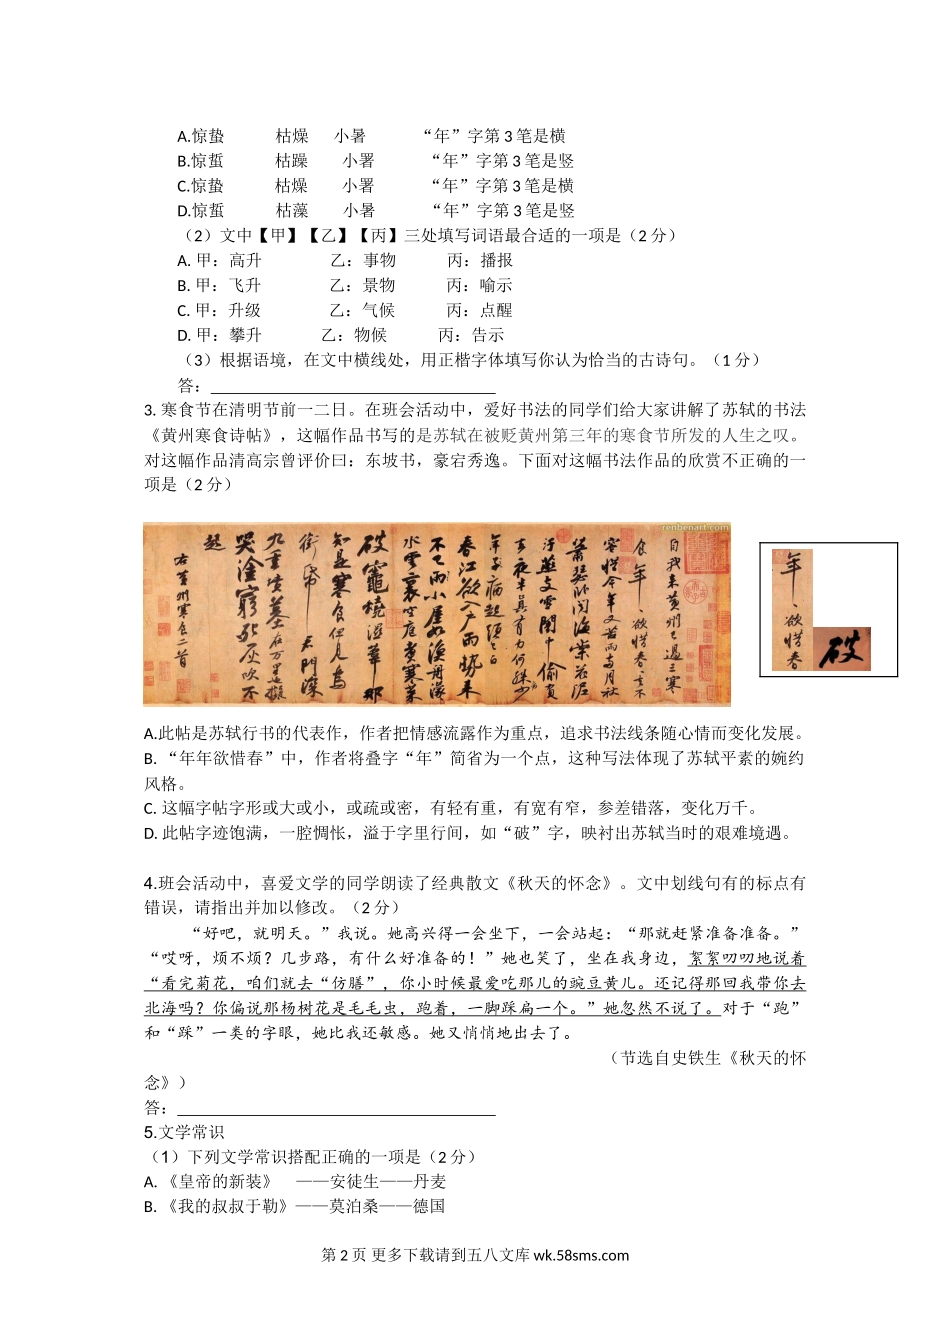 A.惊蛰 枯燥 小暑 “年”字第 3 笔是横
B.惊蜇 枯躁 小署 “年”字第 3 笔是竖
C.惊蛰 枯燥 小署 “年”字第 3 笔是横
D.惊蜇 枯藻 小暑 “年”字第 3 笔是竖
（2）文中【甲】【乙】【丙】三处填写词语最合适的一项是（2 分）
A. 甲：高升 乙：事物 丙：播报
B. 甲：飞升 乙：景物 丙：喻示
C. 甲：升级 乙：气候 丙：点醒
D. 甲：攀升 乙：物候 丙：告示
（3）根据语境，在文中横线处，用正楷字体填写你认为恰当的古诗句。（1 分）
答：
3. 寒食节在清明节前一二日。在班会活动中，爱好书法的同学们给大家讲解了苏轼的书法
《黄州寒食诗帖》，这幅作品书写的是苏轼在被贬黄州第三年的寒食节所发的人生之叹。
对这幅作品清高宗曾评价曰：东坡书，豪宕秀逸。下面对这幅书法作品的欣赏不正确的一
项是（2 分）
renbenart.com
自我来黄州已过三寒
食年、欲惜春去不
容惜今年又苦雨两月秋
萧瑟卧闻海棠花泥
污燕支雪闇中偷负
去夜半真有力何殊少
年子病起须已白
春江欲入户雨势来
不已雨小屋如渔舟濛
水云里空庖煮寒菜
破灶烧湿苇那
知是寒食但见乌
衔帋君门深
九重坟墓在万里也拟
哭涂穷死灰吹不
起
右黄州寒食二首
年、欲惜春
破
A.此帖是苏轼行书的代表作，作者把情感流露作为重点，追求书法线条随心情而变化发展。
B. “年年欲惜春”中，作者将叠字“年”简省为一个点，这种写法体现了苏轼平素的婉约
风格。
C. 这幅字帖字形或大或小，或疏或密，有轻有重，有宽有窄，参差错落，变化万千。
D. 此帖字迹饱满，一腔惆怅，溢于字里行间，如“破”字，映衬出苏轼当时的艰难境遇。
4.班会活动中，喜爱文学的同学朗读了经典散文《秋天的怀念》。文中划线句有的标点有
错误，请指出并加以修改。（2 分）
“好吧，就明天。”我说。她高兴得一会坐下，一会站起：“那就赶紧准备准备。”
“哎呀，烦不烦？几步路，有什么好准备的！”她也笑了，坐在我身边，絮絮叨叨地说着
“看完菊花，咱们就去“仿膳”，你小时候最爱吃那儿的豌豆黄儿。还记得那回我带你去
北海吗？你偏说那杨树花是毛毛虫，跑着，一脚踩扁一个。”她忽然不说了。对于“跑”
和“踩”一类的字眼，她比我还敏感。她又悄悄地出去了。
（节选自史铁生《秋天的怀
念》）
答：
5.文学常识
（1）下列文学常识搭配正确的一项是（2 分）
A. 《皇帝的新装》 ——安徒生——丹麦
B. 《我的叔叔于勒》——莫泊桑——德国
第 2 页 更多下载请到五八文库 wk.58sms.com